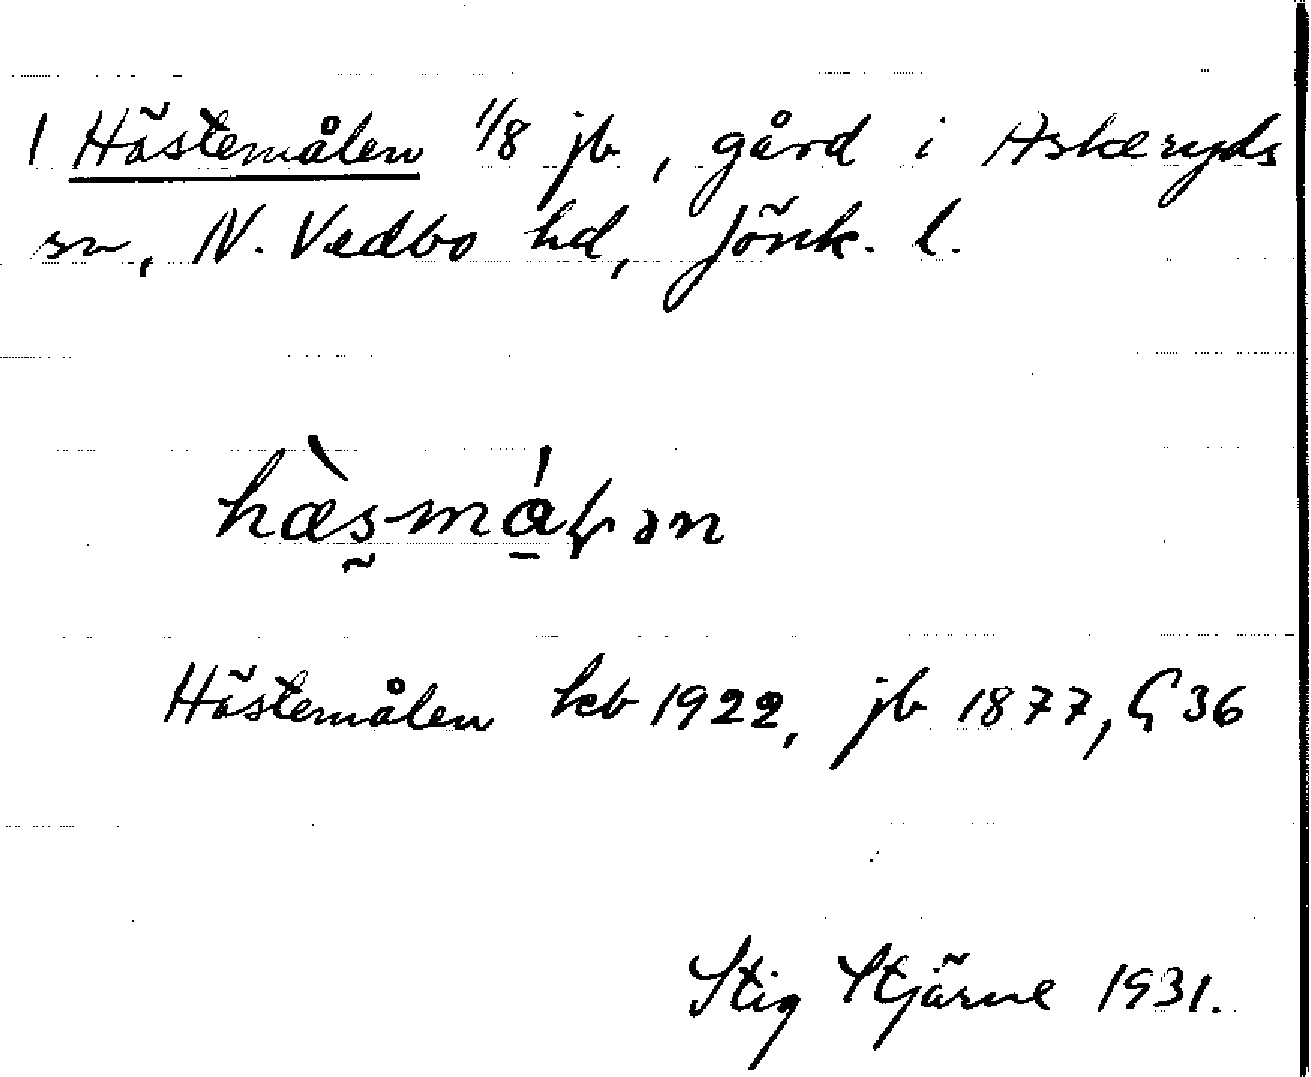 1 Hästemålen 1/8 jb, gård i Askeryds
sn, N. Vedbo hd, Jönk. l.
hæ̀s̰mǻ̱ɽən
Hästemålen kb 1922, jb 1877, G 36
Stig Stjärne 1931.